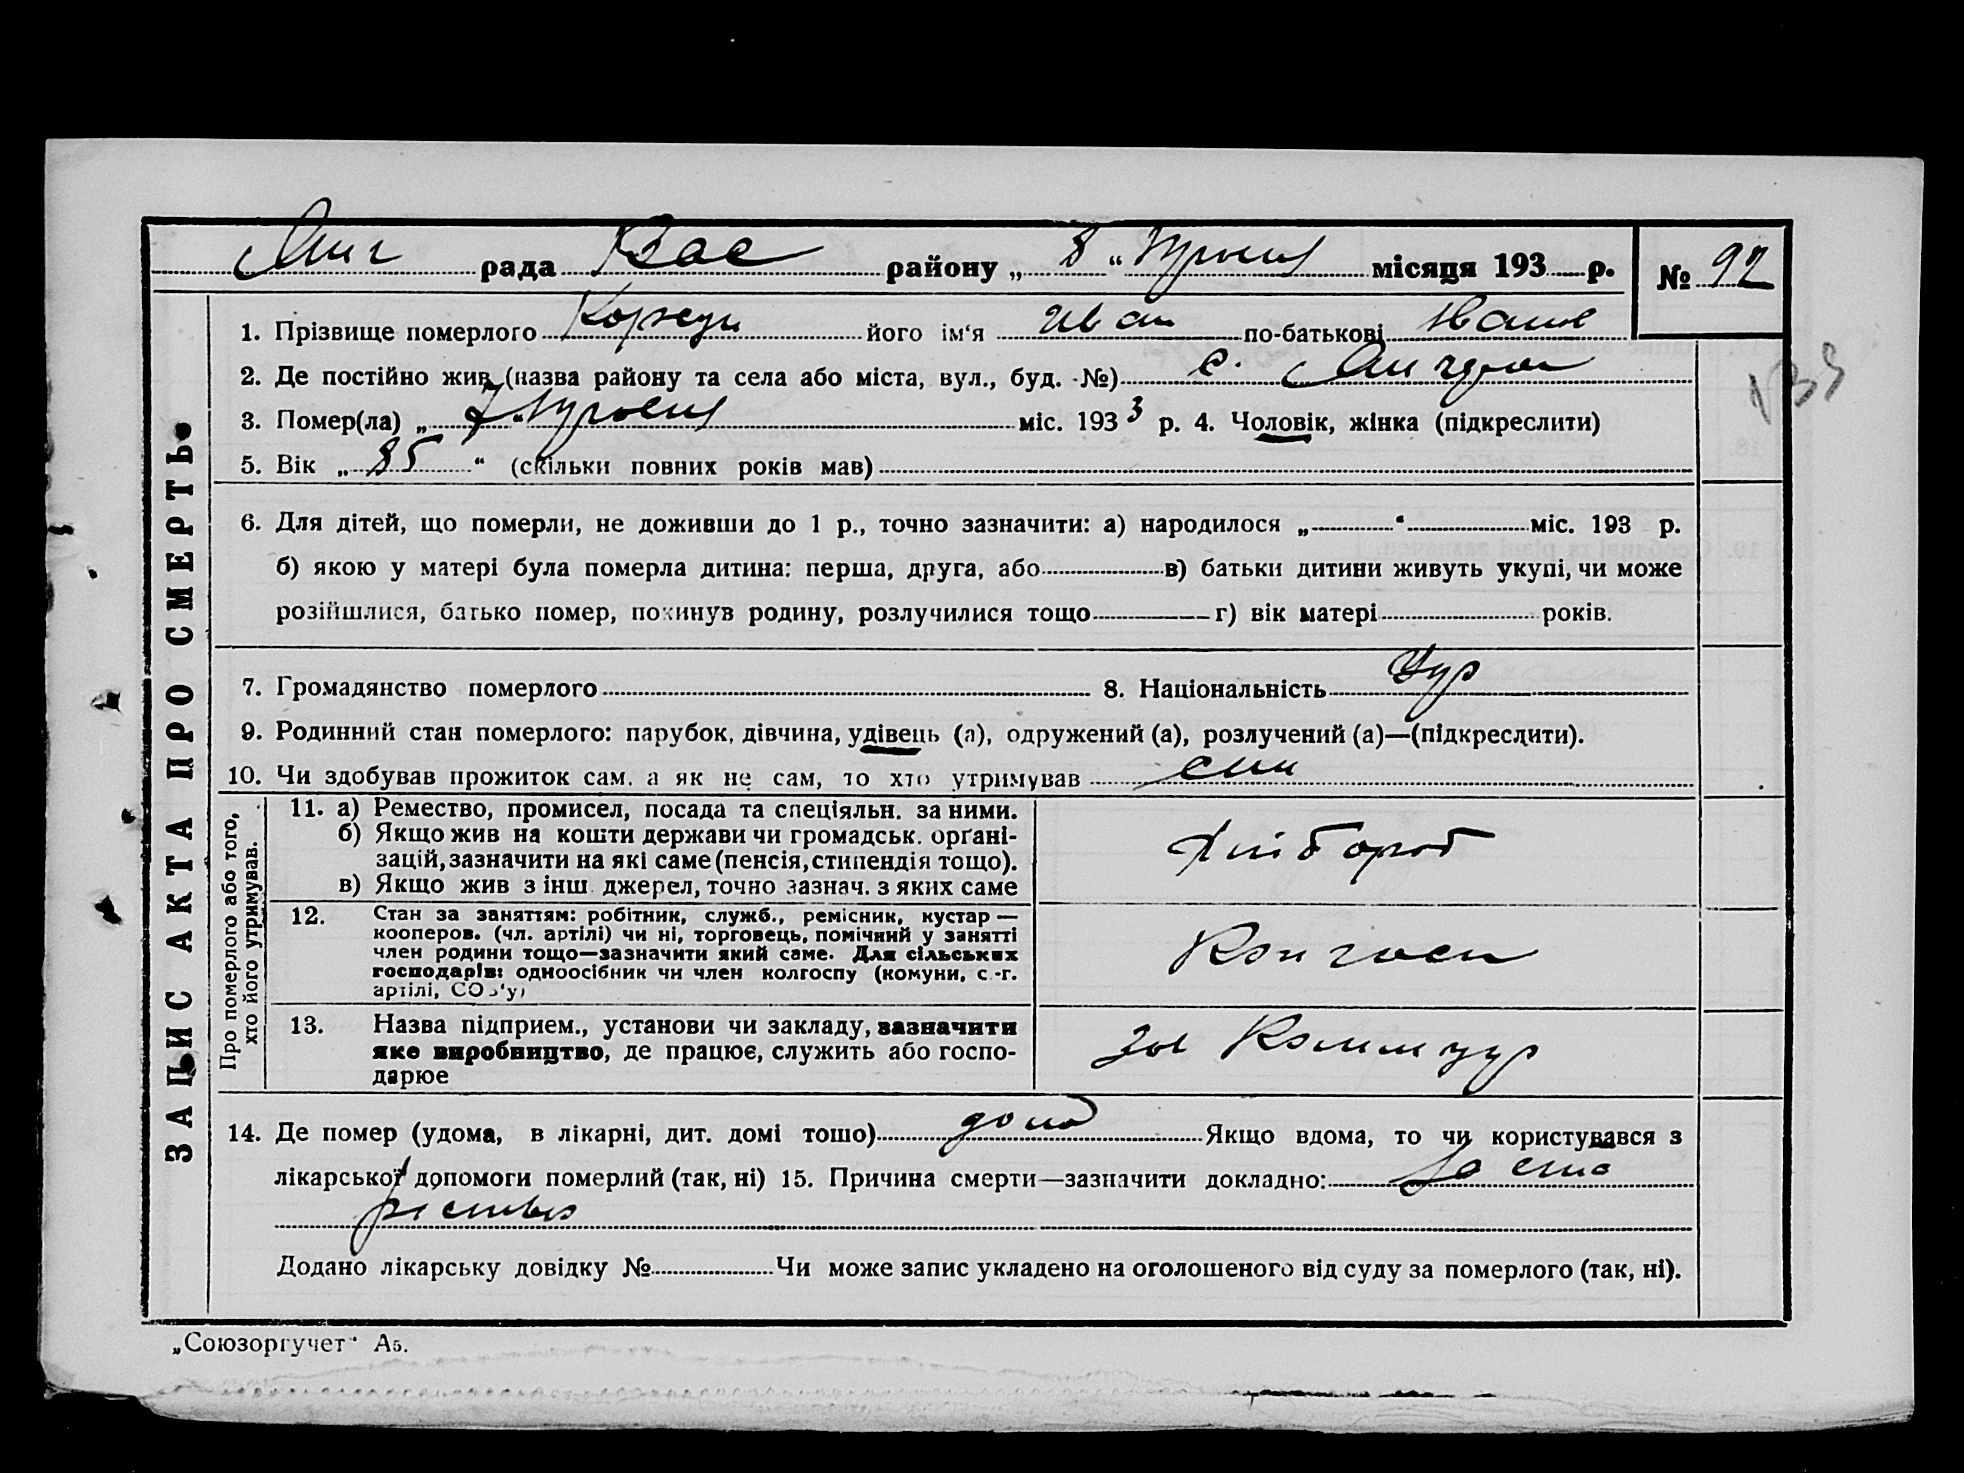 рада Вас району „ 8 “ місяця 193 р. № 92
ЗАПИС АКТА ПРО СМЕРТЬ
1. Прізвище померлого його ім‘я Иван по-батькові
2. Де постійно жив (назва району та села або міста, вул., буд. №) с.
3. Помер(ла) „ 7 “ міс. 193 3 р. 4. Чоловік, жінка (підкреслити)
5. Вік „ 85 “ (скільки повних років мав)
6. Для дітей, що померли, не доживши до 1 р., точно зазначити: а) народилося „ “ міс. 193 р.
б) якою у матері була померла дитина: перша, друга, або в) батьки дитини живуть укупі, чи може
розійшлися, батько помер, покинув родину, розлучилися тощо г) вік матері років.
7. Громадянство померлого 8. Національність
9. Родинний стан померлого: парубок, дівчина, удівець (а), одружений (а), розлучений (а)—(підкреслити).
10. Чи здобував прожиток сам, а як не сам, то хто утримував син
Про померлого або того,
хто його утримував.
11. а) Ремество, промисел, посада та спеціяльн. за ними.
б) Якщо жив на кошти держави чи громадськ. орґані-
зацій, зазначити на які саме (пенсія, стипендія тощо).
в) Якщо жив з інш. джерел, точно зазнач. з яких саме
Хлібороб
12. Стан за заняттям: робітник, служб., ремісник, кустар —
кооперов. (чл. артілі) чи ні, торговець, помічний у занятті
член родини тощо—зазначити який саме. Для сільських
господарів: одноосібник чи член колгоспу (комуни, с.-г.
артілі, СОЗ‘у)
13. Назва підприєм., установи чи закладу, зазначити
яке виробництво, де працює, служить або госпо-
дарює
14. Де помер (удома, в лікарні, дит. домі тощо) дома Якщо вдома, то чи користувався з
лікарської допомоги померлий (так, ні) 15. Причина смерти—зазначити докладно:
Додано лікарську довідку № Чи може запис укладено на оголошеного від суду за померлого (так, ні).
„Союзоргучет“ А5.